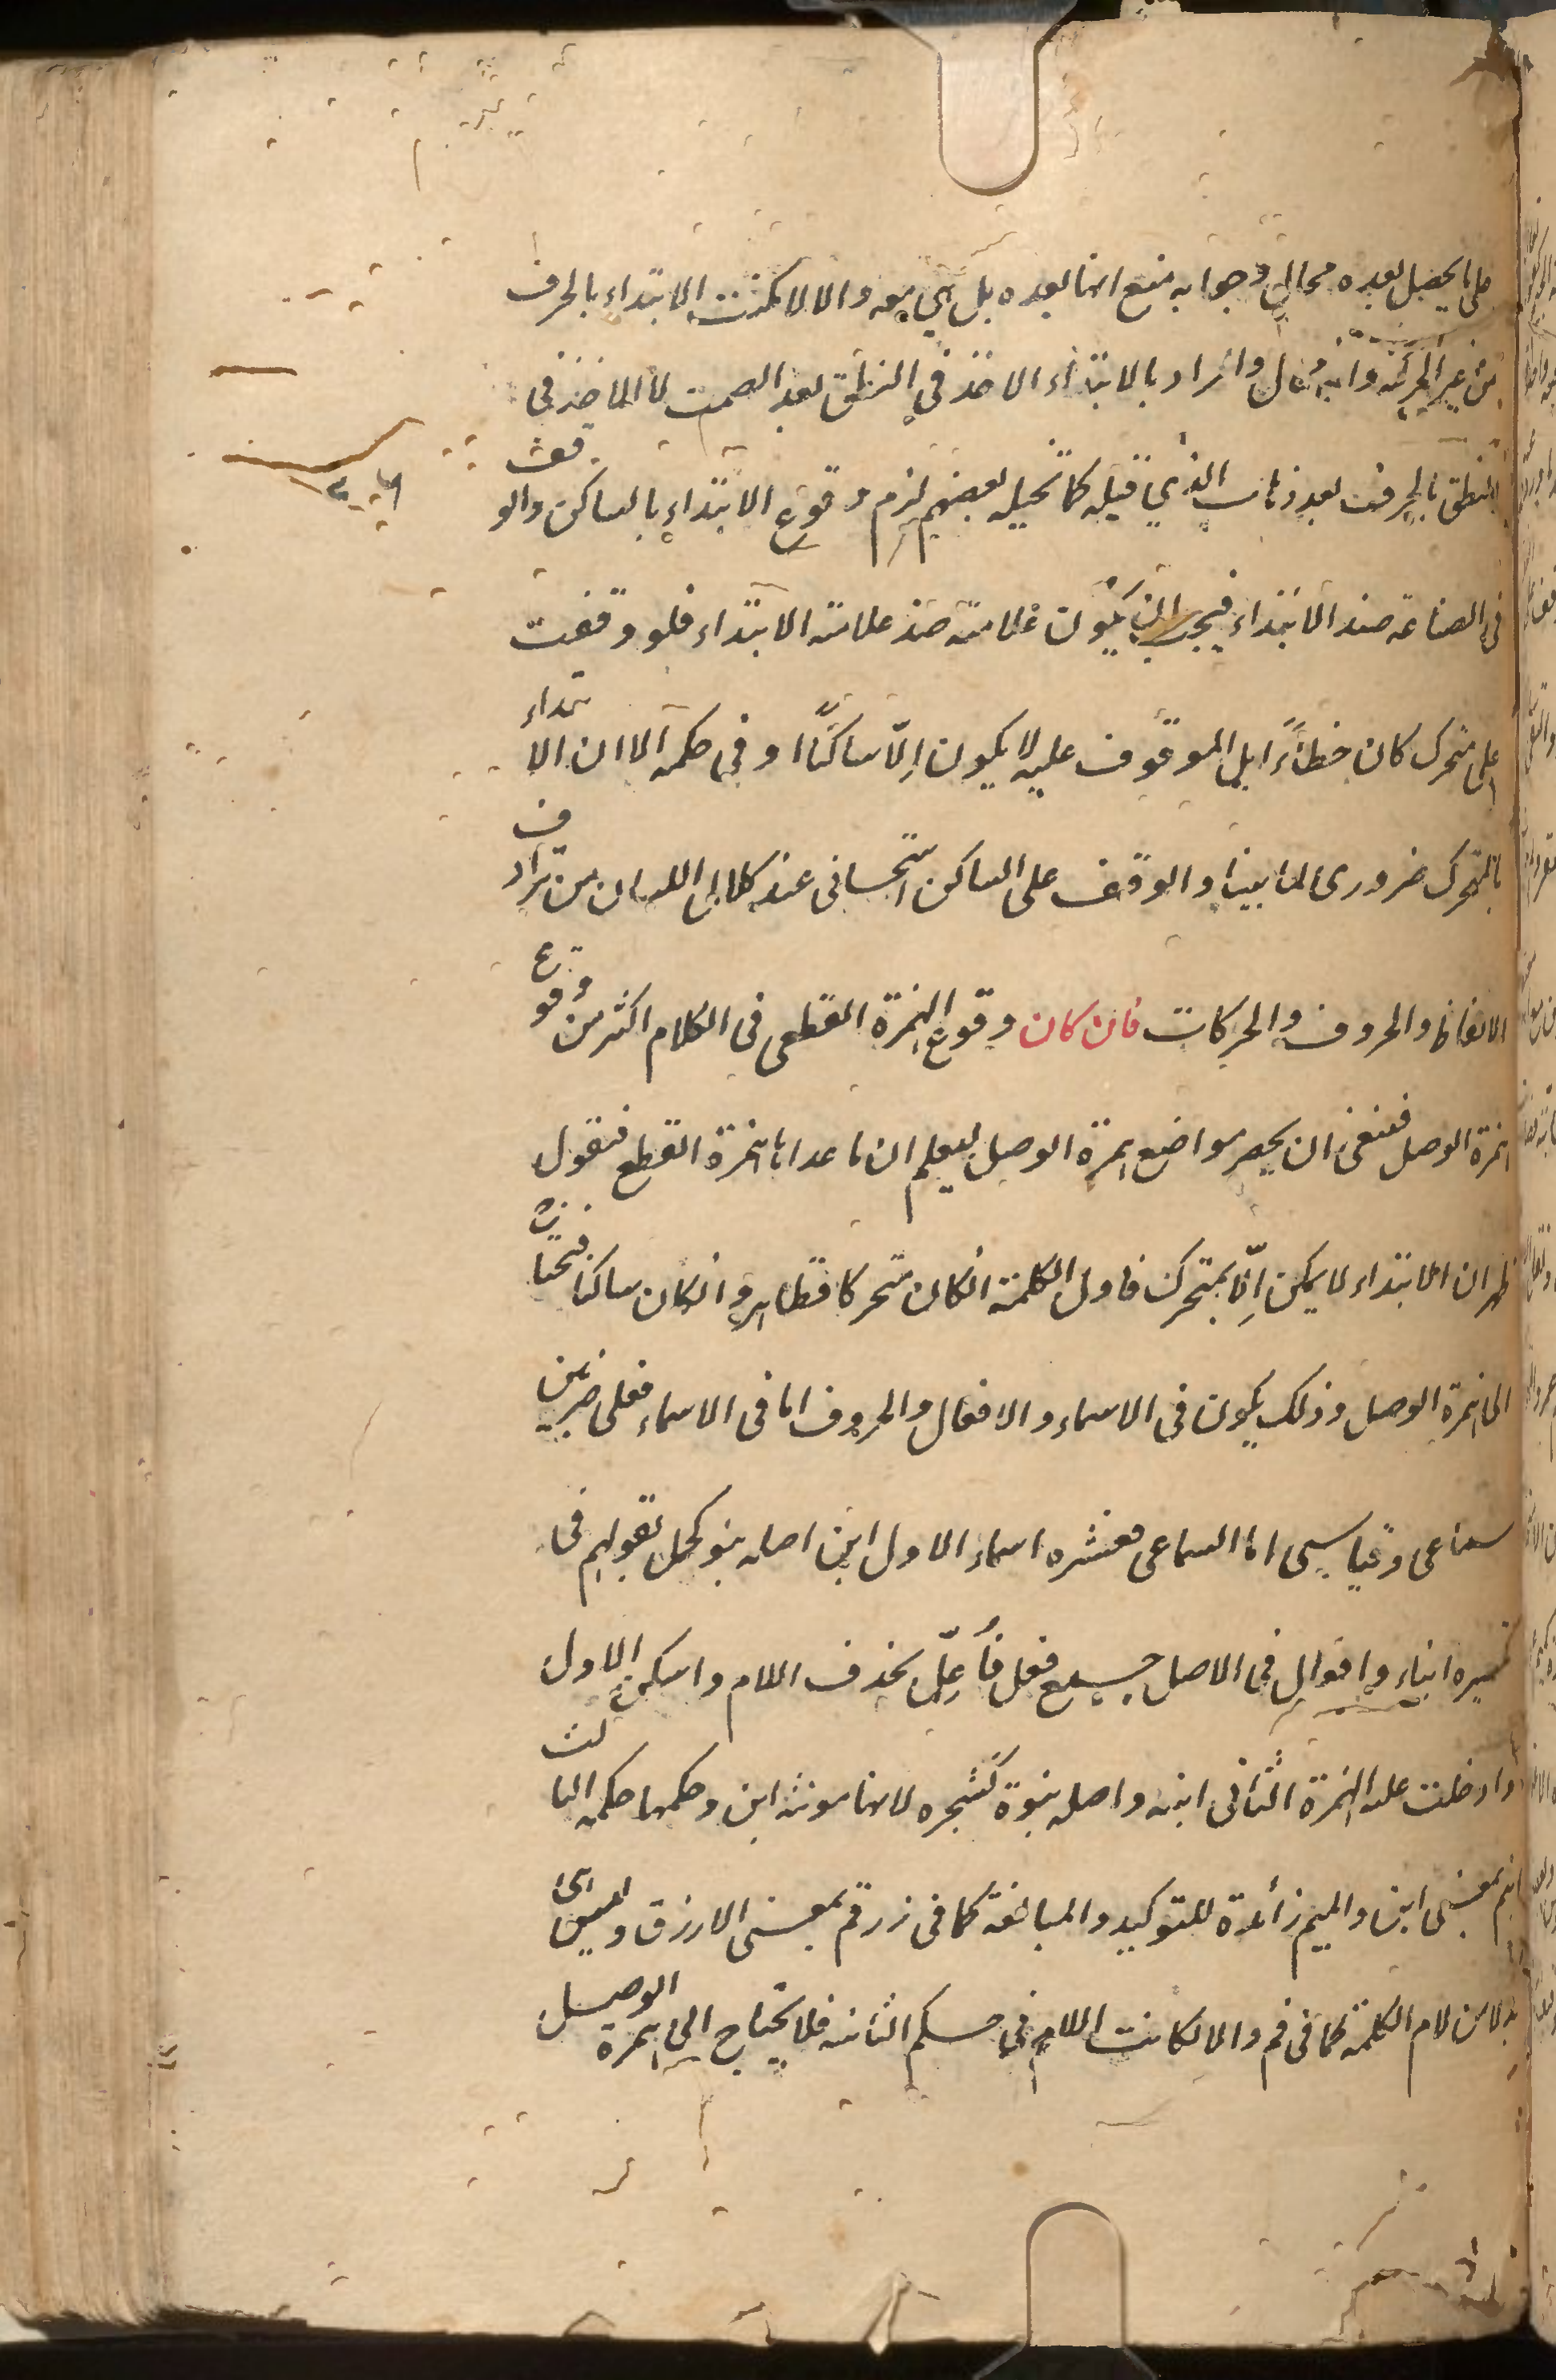 على ما يحصل بعده محال وجوابه منع انها بعده بل هي معه والا لامكنت الابتداء بالحرف
من غير الحركة وانه محال والمراد بالابتداء الاخذ في النطق بعد الصمت لا الاخذ في
النطق بالحرف بعد ذهاب الذي قبله كما تخيله بعضهم لزم وقوع الابتداء بالساكن والوقف
في الصناعة ضد الابتداء فيجب ان يكون علامته ضد علامته الابتداء فلو وقفت
على متحرك كان خطأً بل الموقوف عليه لا يكون إلّا ساكنًا او في حكمه الا ان الابتداء
بالمتحرك ضروري لما بينا والوقف على الساكن استحساني عند كلال اللسان من ترادف
الالفاظ والحروف والحركات فان كان وقوع الهمزة القطعي في الكلام اكثر من وقوع
همزة الوصل فينبغي ان يحصر مواضع همزة الوصل ليعلم ان ما عداها همزة القطع فنقول
ظهر ان الابتداء لا يمكن إلّا بمتحرك فاول الكلمة انكان متحركا فظاهر وانكان ساكنا فيحتاج
الى همزة الوصل وذلك يكون في الاسماء والافعال والحروف اما في الاسماء فعلى ضربين
سماعي وقياسي اما السماعي فعشره اسماء الاول ابن اصله بنو كجمل لقولهم في
تكسيره ابناء وافعال في الاصل جمع فعل فأُعِلّ بحذف اللام واسكن الاول
وادخلت عليه الهمزة الثاني ابنه واصله بنوة كشجره لانها مونثه ابن وحكمها حكمه الثالث
ابنم بمعنى ابن والميم زائدة للتوكيد والمبالغة كما في زرقم بمعنى الازرق وليس
بدلا من لام الكلمة كما في فم والا لكانت اللام في حكم الثابته فلا يحتاج الى همزة الوصل